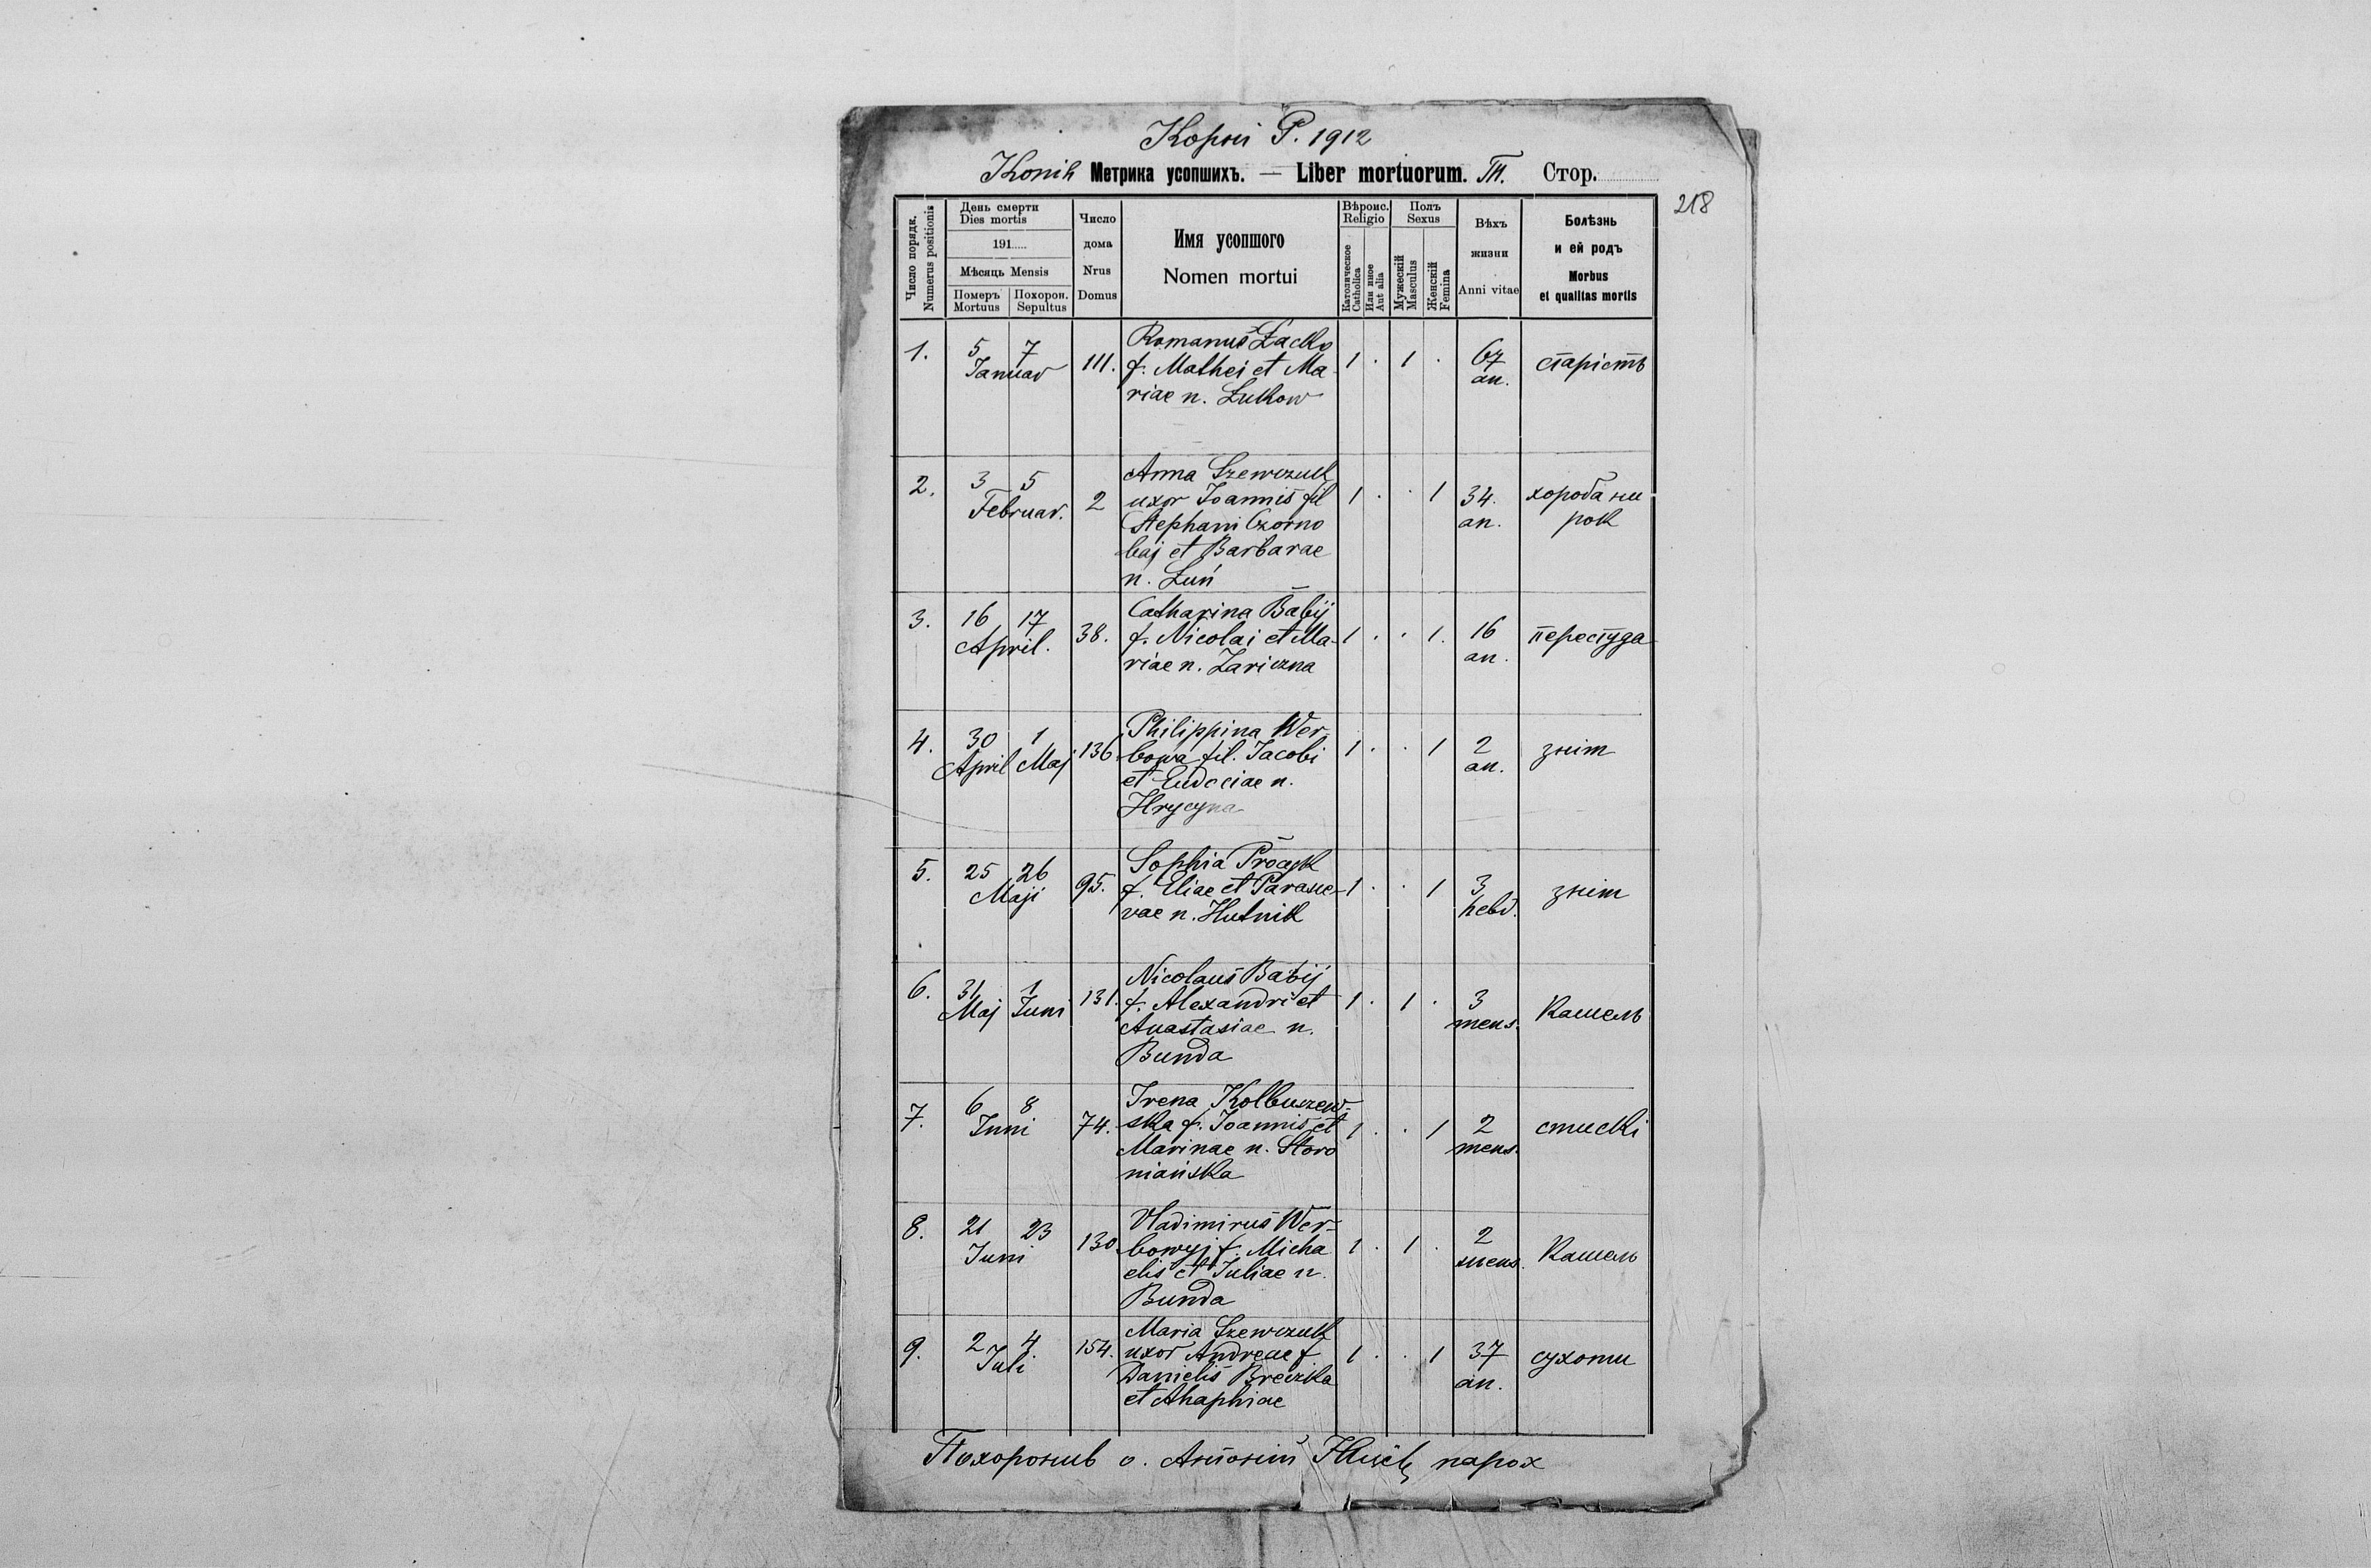 Копїї Р. 1912
Метрика усопшихъ. — Liber mortuorum. Стор.
218
Число порядк. Numerus positionis
День смерти Dies mortis
191
Мѣсяць Mensis
Померъ Mortuus
Похорон. Sepultus
Число дома Nrus Domus
Имя усопшого
Nomen mortui
Вѣроис. Religio
Католическое Catholica
Или иное Aut alia
Полъ Sexus
Мужескій Masculus
Женскій Femina
Вѣхъ жизни Anni vitae
Болѣзнь и ей родъ
Morbus et qualitas mortis
1. 5 7 Januar 111. Romanus Łacko 1 . 1 . 67 an. старість
f. Mathei et Ma-
riae n. Łukow
2. 3 5 Februar. 2 Anna Szewczuk 1 . . 1 34. an. хороба ни
uxor Joannis fil рок
Stephani Czorno
baj et Barbarae
n. Łuń
3. 16 17 April. 38. Catharina Babij 1 . . 1. 16 an. перестуда
f. Nicolai et Ma-
riae n. Zariczna
4. 30 April 1 Maj 136 Philippina Wer- 1 . . 1 2 an. зніт
bowa fil. Jacobi
et Eudociae n.
Hrycyna
5. 25 26 Maji 95. Sophia Procyk 1 . . 1 3 hebd. зніт
f. Eliae et Parasce-
vae n. Hutnik
6. 31 Maj 1 Juni 131. Nicolaus Babij 1 . 1 . 3 mens. кашель
f. Alexandri et
Anastasiae n.
Bunda
7. 6 8 Juni 74. Irena Kolbuszew- 1 . . 1 2 mens. стискі
ska f. Joannis et
Marinae n. Storo
niańska
8. 21 23 Juni 130 Vladimirus Wer- 1 . 1 . 2 mens. кашель
bowyj f. Micha
elis et Juliae n.
Bunda
9. 2 4. Juli 154. Maria Szewczuk 1 . . 1 37 an. сухоти
uxor Andreae f
Danielis Breczka
et Ahaphiae
Похоронив о. Антоній парох